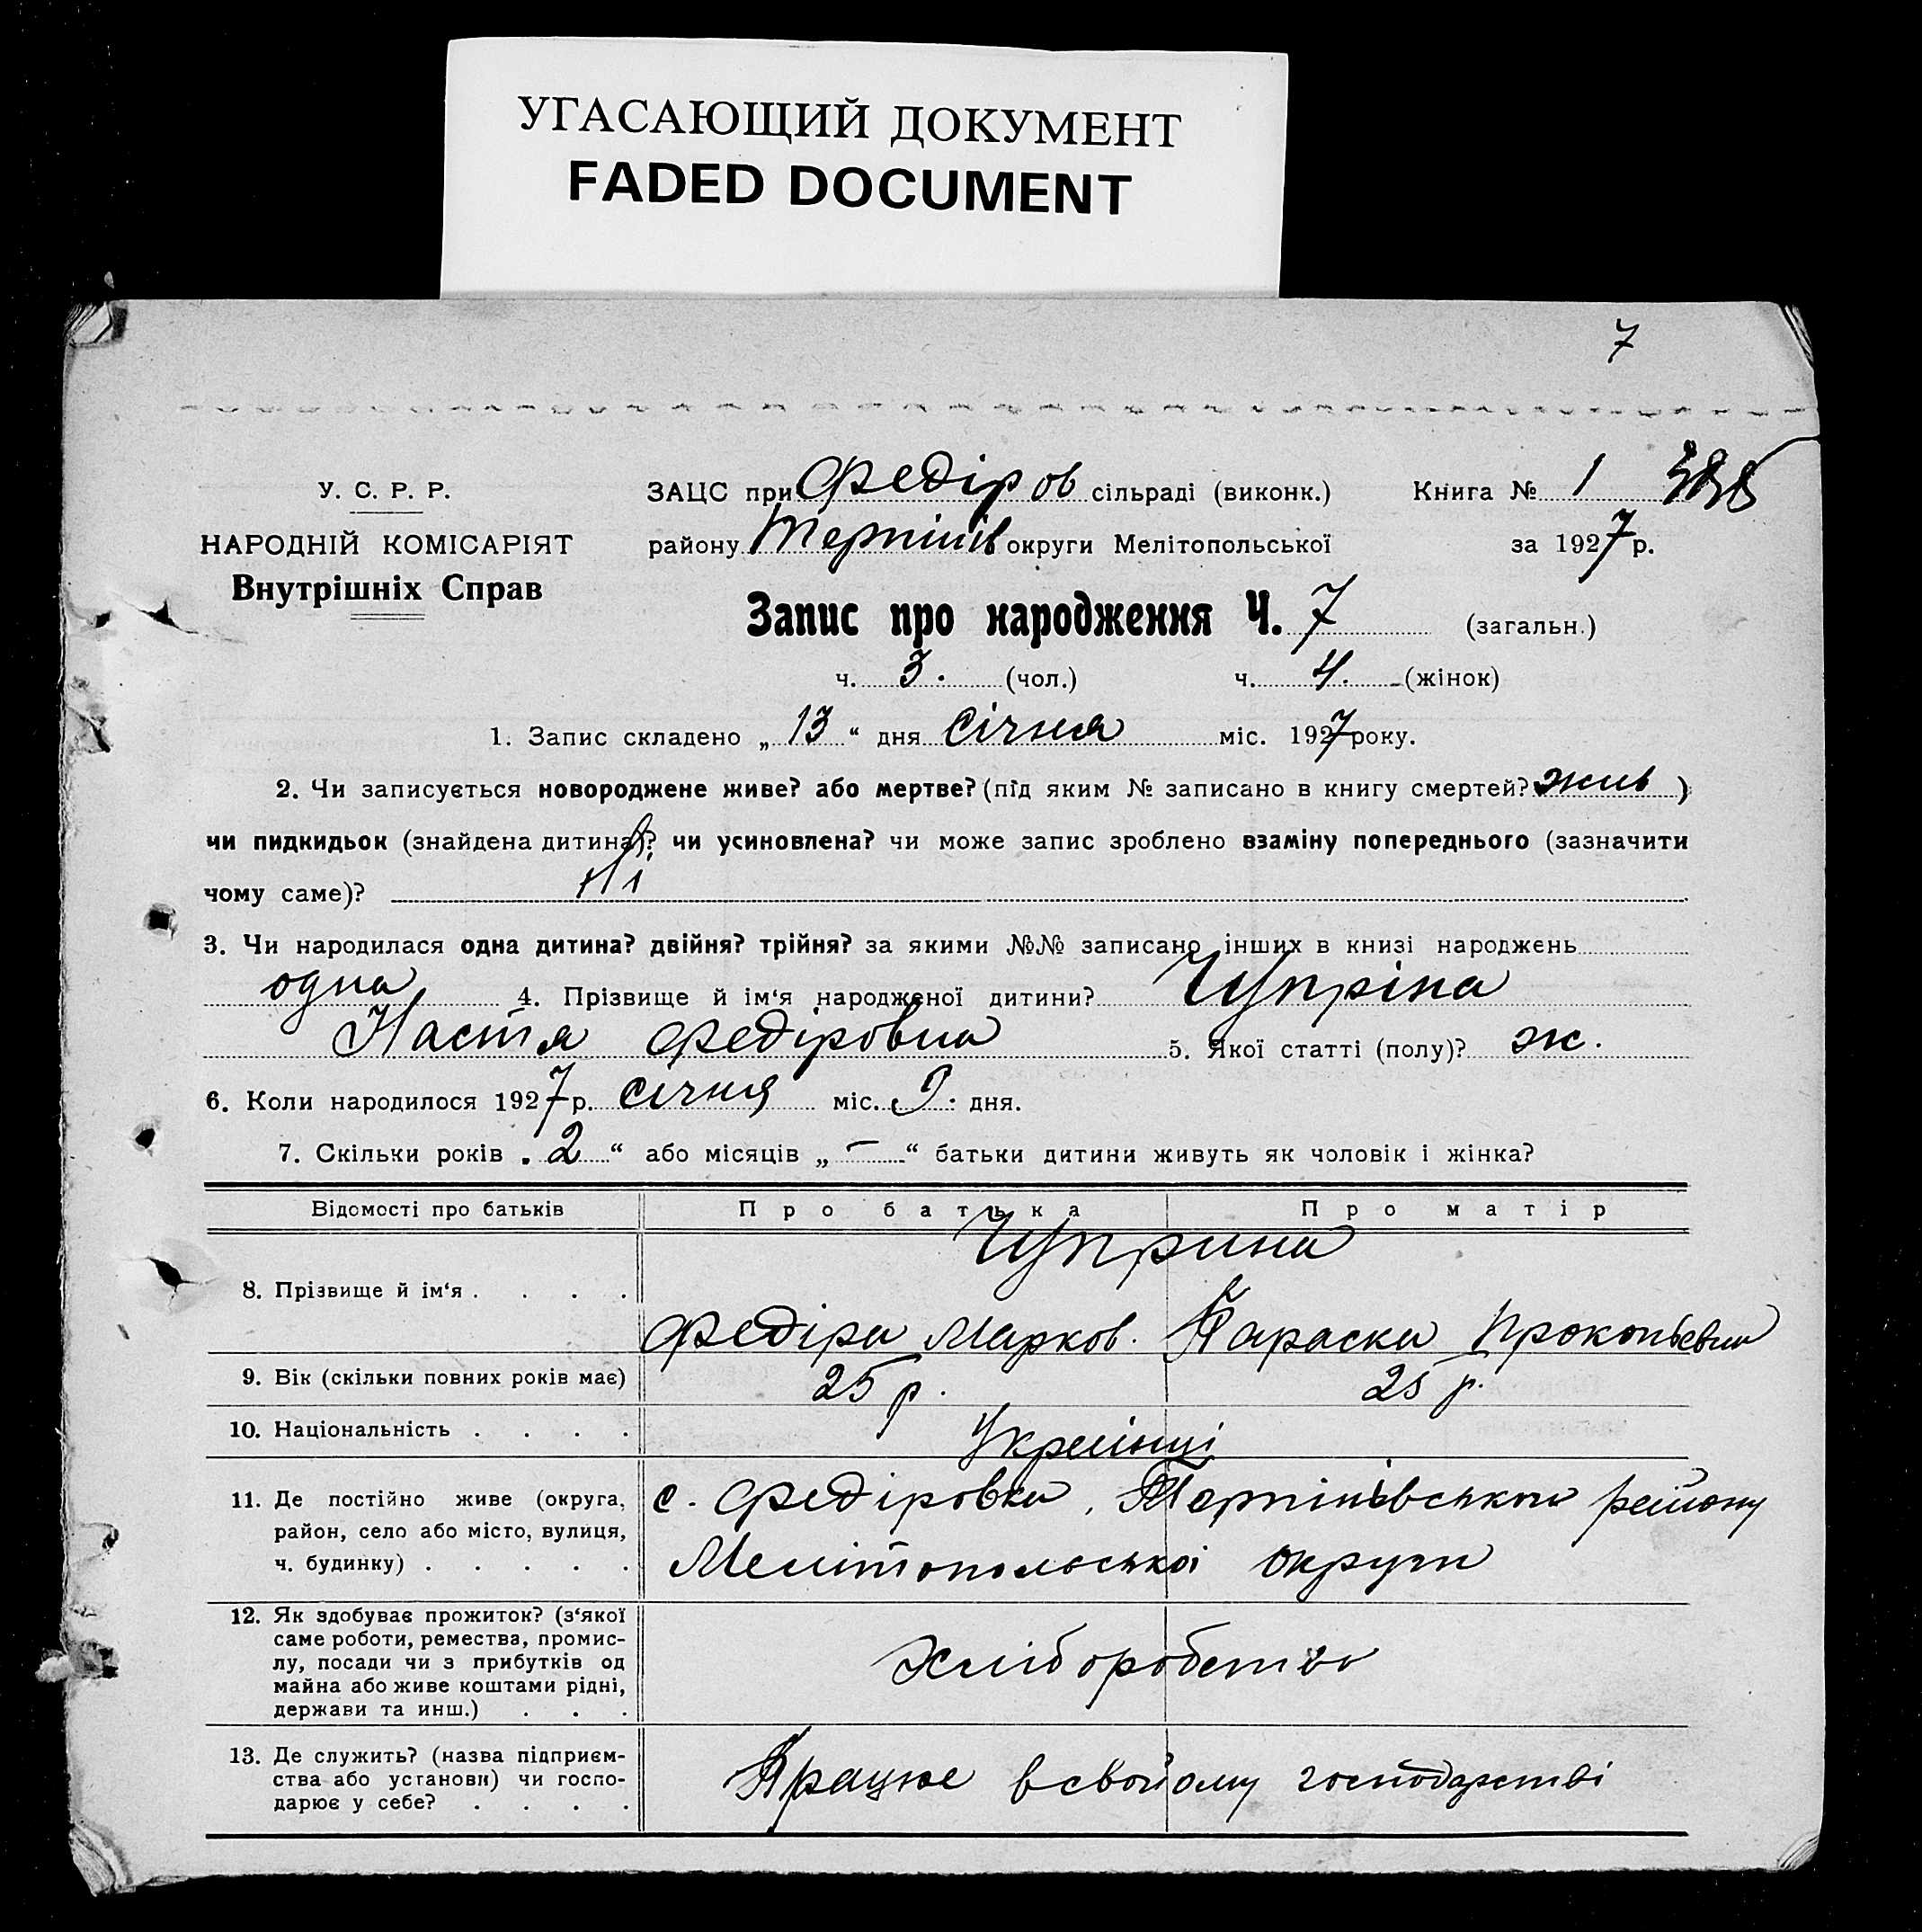 УГАСАЮЩИЙ ДОКУМЕНТ
FADED DOCUMENT
7
У. С. Р. Р.
НАРОДНІЙ КОМІСАРІЯТ
Внутрішніх Справ
ЗАЦС при Федіров сільраді (виконк.) Книга № 1
району Терпінів округи Мелітопольської за 1927 р.
Запис про народження Ч. 7 (загальн.)
ч. 3. (чол.) ч. 4. (жінок)
1. Запис складено „ 13 “ дня січня міс. 1927 року.
2. Чи записується новороджене живе? або мертве? (під яким № записано в книгу смертей? жив )
чи пидкидьок (знайдена дитина)? чи усиновлена? чи може запис зроблено взаміну попереднього (зазначити
чому саме)? Ні
3. Чи народилася одна дитина? двійня? трійня? за якими №№ записано інших в книзі народжень
одна 4. Прізвище й ім‘я народженої дитини? Чупріна
Настя Федіровна 5. Якої статті (полу)? ж.
6. Коли народилося 1927 р. січня міс. 9. дня.
7. Скільки років „ 2 “ або місяців „ — “ батьки дитини живуть як чоловік і жінка?
Відомості про батьків Про батька Про матір
Чуприна
8. Прізвище й ім‘я . . . .
Федіра Марков. Параска Прокопьевна
9. Вік (скільки повних років має) 25 р. 25 р.
10. Національність . . . . Украінці
11. Де постійно живе (округа, с. Федіровка, Терпінівського району
район, село або місто, вулиця,
ч. будинку) . . . . . Мелітопольскоі округи
12. Як здобуває прожиток? (з‘якої
саме роботи, ремества, промис-
лу, посади чи з прибутків од Хліборобство
майна або живе коштами рідні,
держави та инш.) . . .
13. Де служить? (назва підприєм-
ства або установи) чи госпо- Працює в свойому господарстві
дарює у себе? . . . .